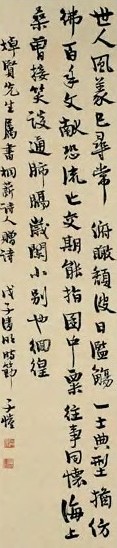 世人風義已尋常俯瞰頹波日濫觴一士典型猶仿
彿百年文獻恐流亡交期能指囷中粟往事同懷海上
桑曾接笑談通肺膈歲闌小別也徊徨
埻賢先生屬書桐薪詩人贈詩 戊子清明時節 子愷